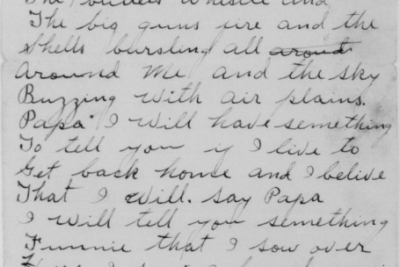 The bullets whistle and
The big guns fire and the
Shells bursting all around
Around Me and the sky
Buzzing With air plains.
Papa I Will have something
To tell you if I live to
Get back house and I belive
That I Will. say Papa
I Will tell you something
Funnie that I sow over